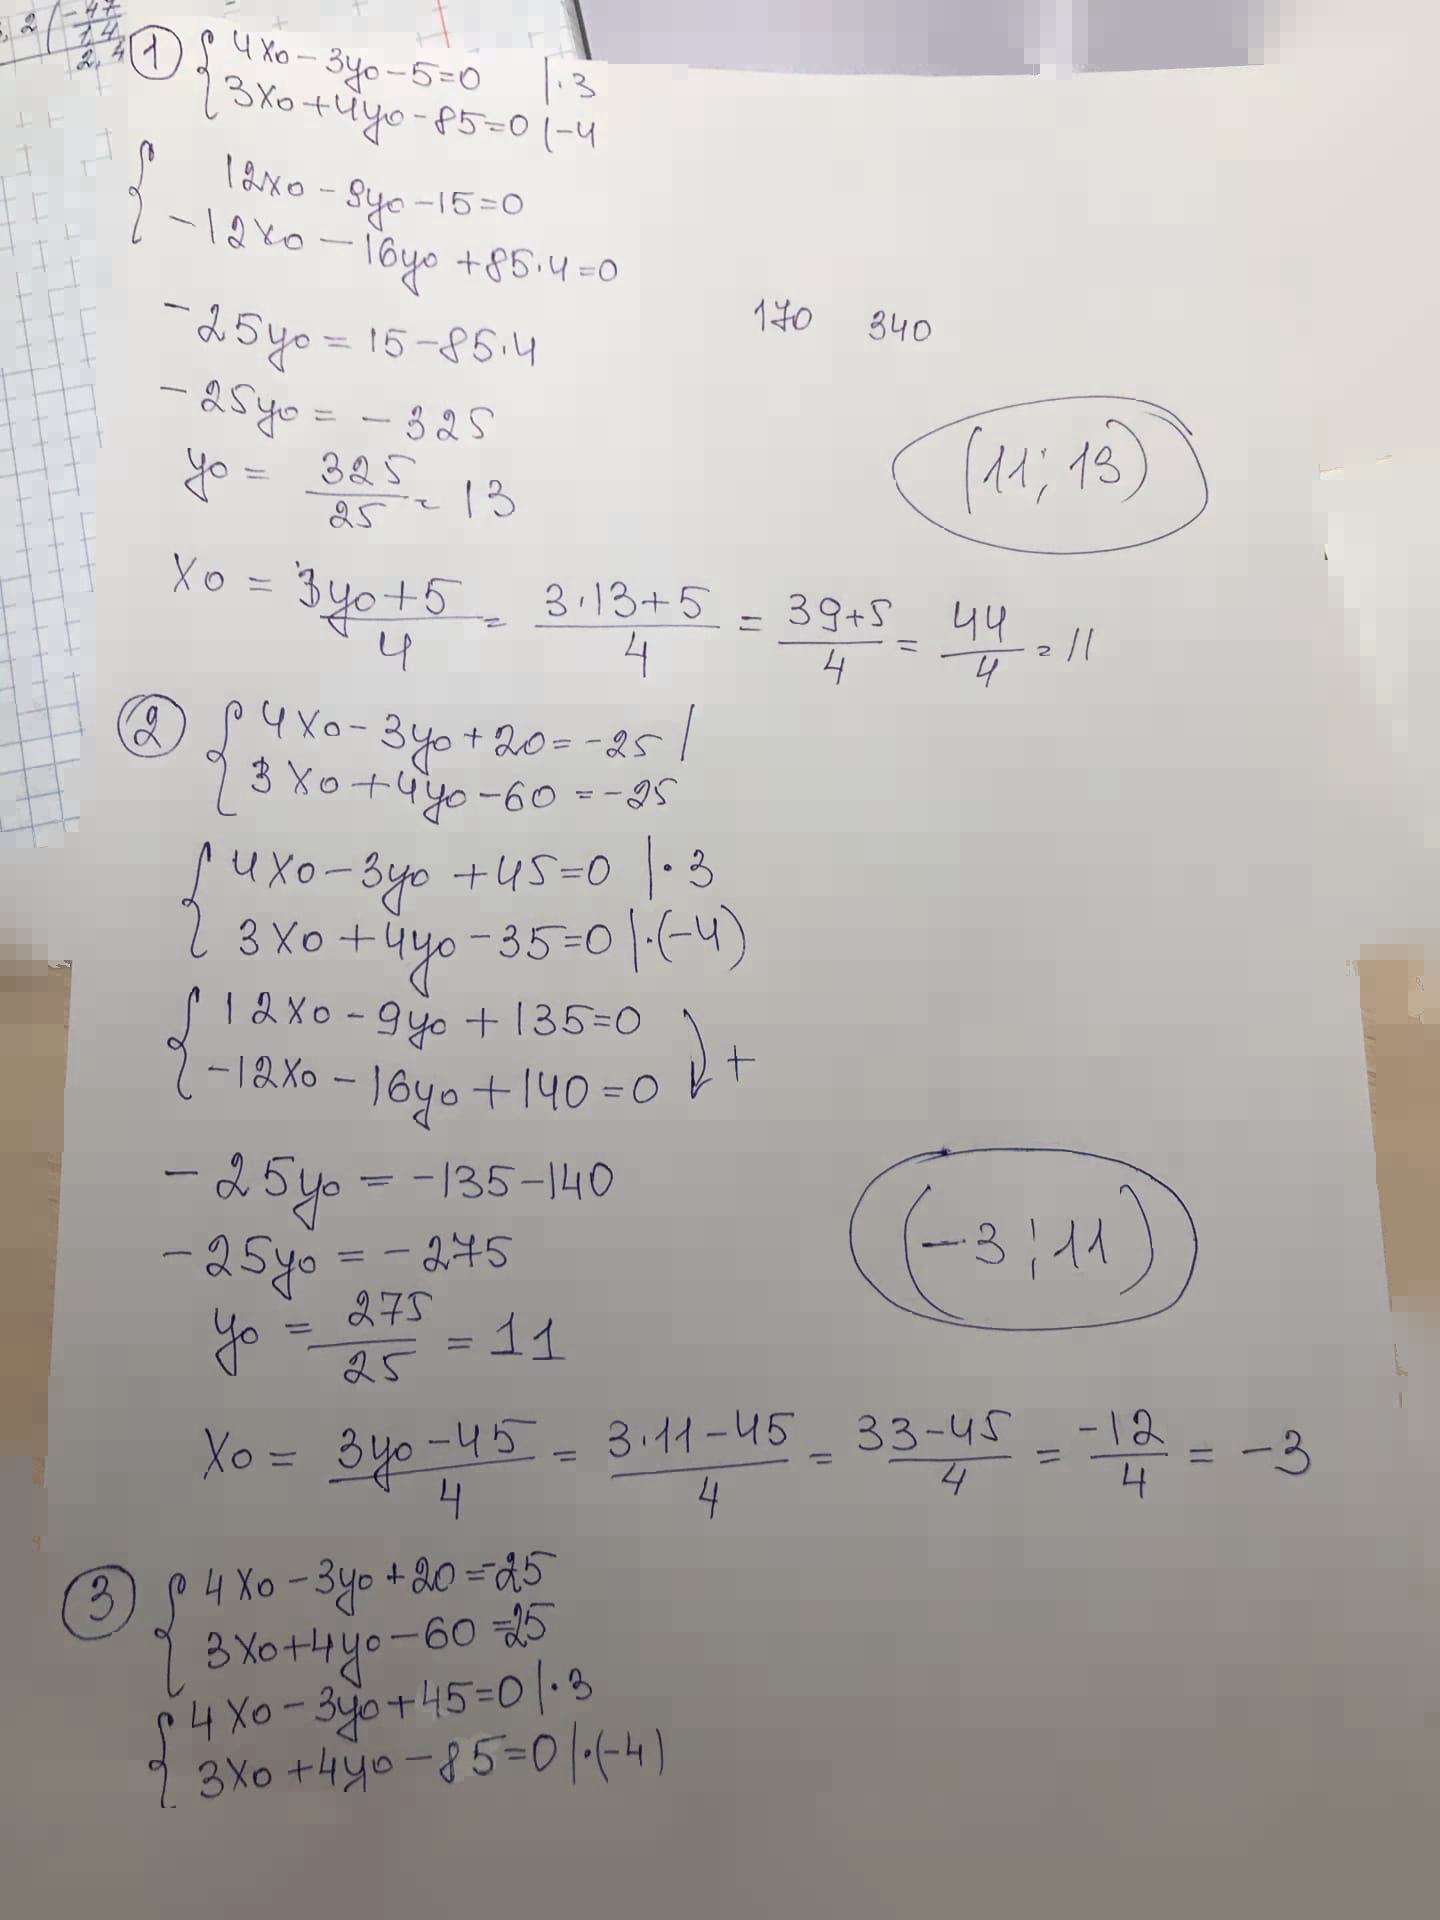 , 2 ( -47
14
2, 4
① { 4x₀ - 3y₀ - 5 = 0 | · 3
3x₀ + 4y₀ - 85 = 0 | -4
{ 12x₀ - 9y₀ - 15 = 0
-12x₀ - 16y₀ + 85·4 = 0
-25y₀ = 15 - 85·4
170 340
-25y₀ = -325
y₀ = 325/25 = 13
(11; 13)
x₀ = 3y₀+5/4 = 3·13+5/4 = 39+5/4 = 44/4 = 11
② { 4x₀ - 3y₀ + 20 = -25 |
3x₀ + 4y₀ - 60 = -25
{ 4x₀ - 3y₀ + 45 = 0 | · 3
3x₀ + 4y₀ - 35 = 0 | · (-4)
{ 12x₀ - 9y₀ + 135 = 0
-12x₀ - 16y₀ + 140 = 0 +
-25y₀ = -135 - 140
-25y₀ = -275
(-3; 11)
y₀ = 275/25 = 11
x₀ = 3y₀-45/4 = 3·11-45/4 = 33-45/4 = -12/4 = -3
③ { 4x₀ - 3y₀ + 20 = -25
3x₀ + 4y₀ - 60 = 25
{ 4x₀ - 3y₀ + 45 = 0 | · 3
3x₀ + 4y₀ - 85 = 0 | · (-4)